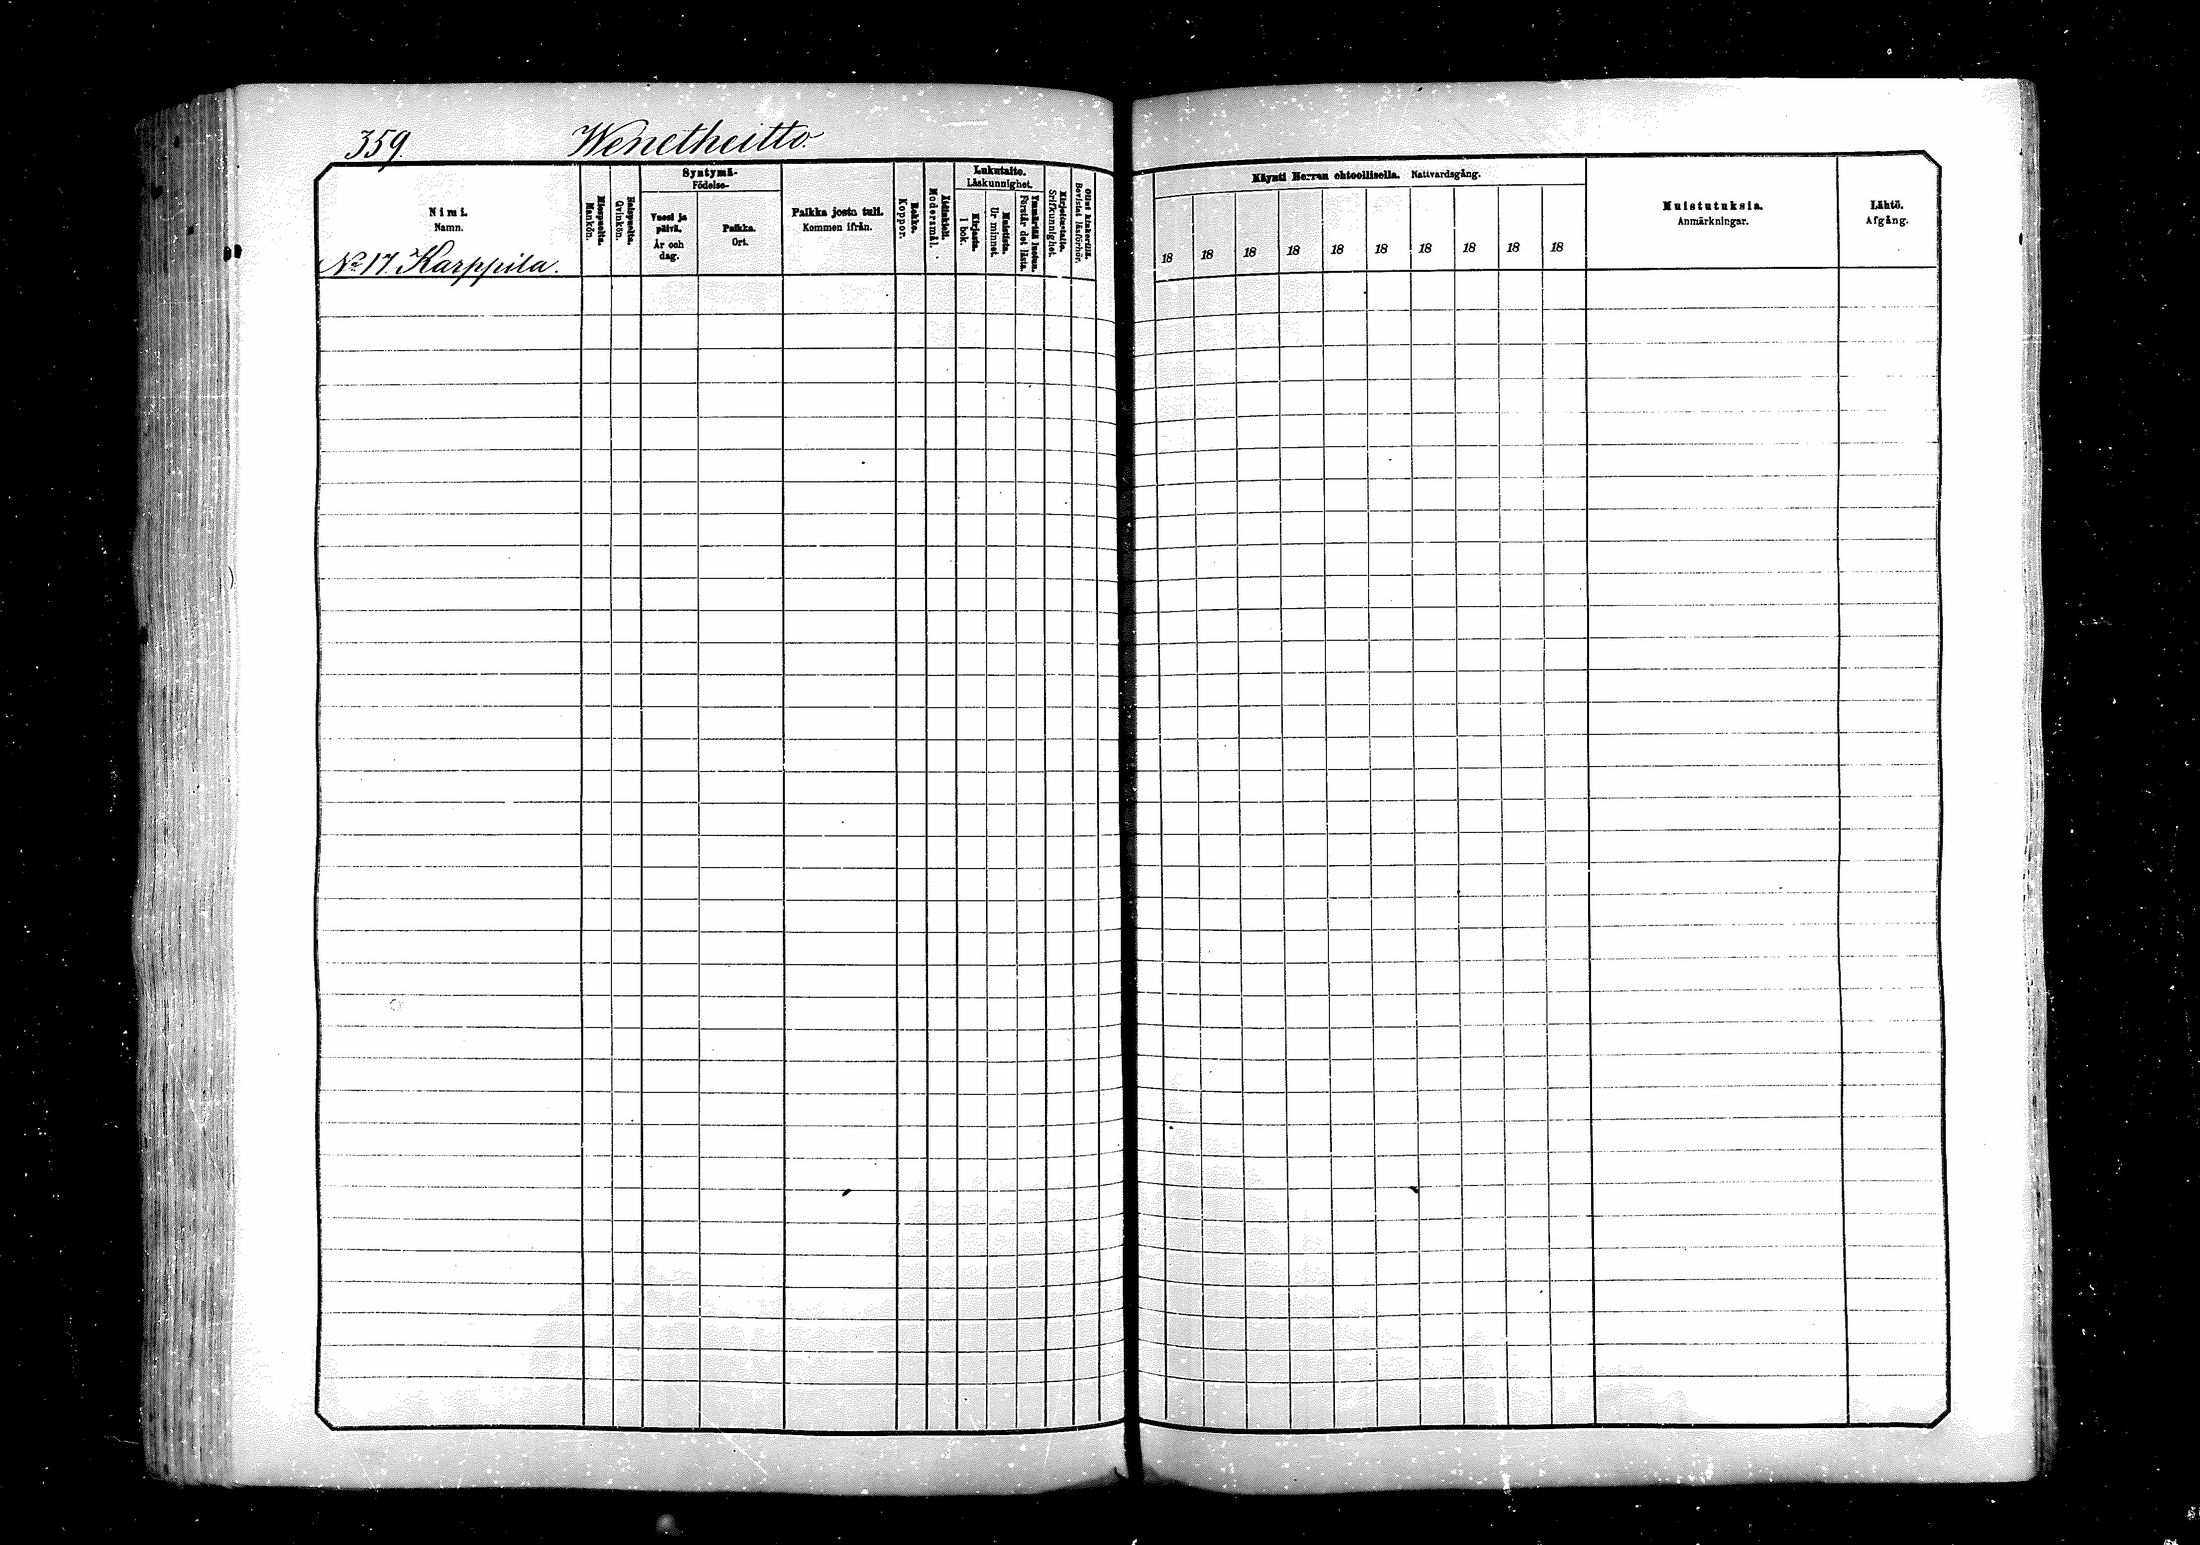 359.
Wenetheitto.
Nimi.
Namn.
No 17. Karppila.
Miespuolia.
Mankön.
Vaimopuolia.
Qvinkön.
Syntymä-
Födelse-
Vuosi ja
päivä.
År och
dag.
Paikka.
Ort.
Paikka josta tuli.
Kommen ifrån.
Rokko.
Koppor.
Äidinkieli.
Modersmål.
Lukutaito.
Läskunnighet.
Kirjasta.
I bok.
Muistista.
Ur minnet.
Ymmärtää luetun.
Förstår det lästa.
Kirjoitustaito.
Srifkunnighet.
Ollut kinkerillä.
Bevistat läsförhör.
Käynti Herran ehtoollisella. Nattvardsgång.
18 18 18 18 18 18 18 18 18 18
Muistutuksia.
Anmärkningar.
Lähtö.
Afgång.